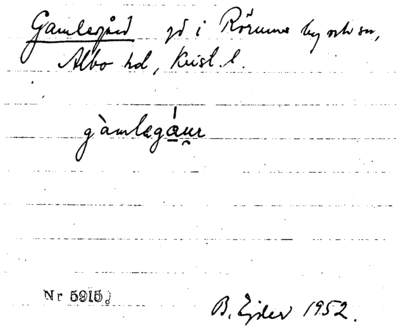 Gamlegård gd i Rörums by och sn,
Albo hd, Krist. l.
gàmlegá̱u̯r
Nr 5915.
B. Ejder 1952.